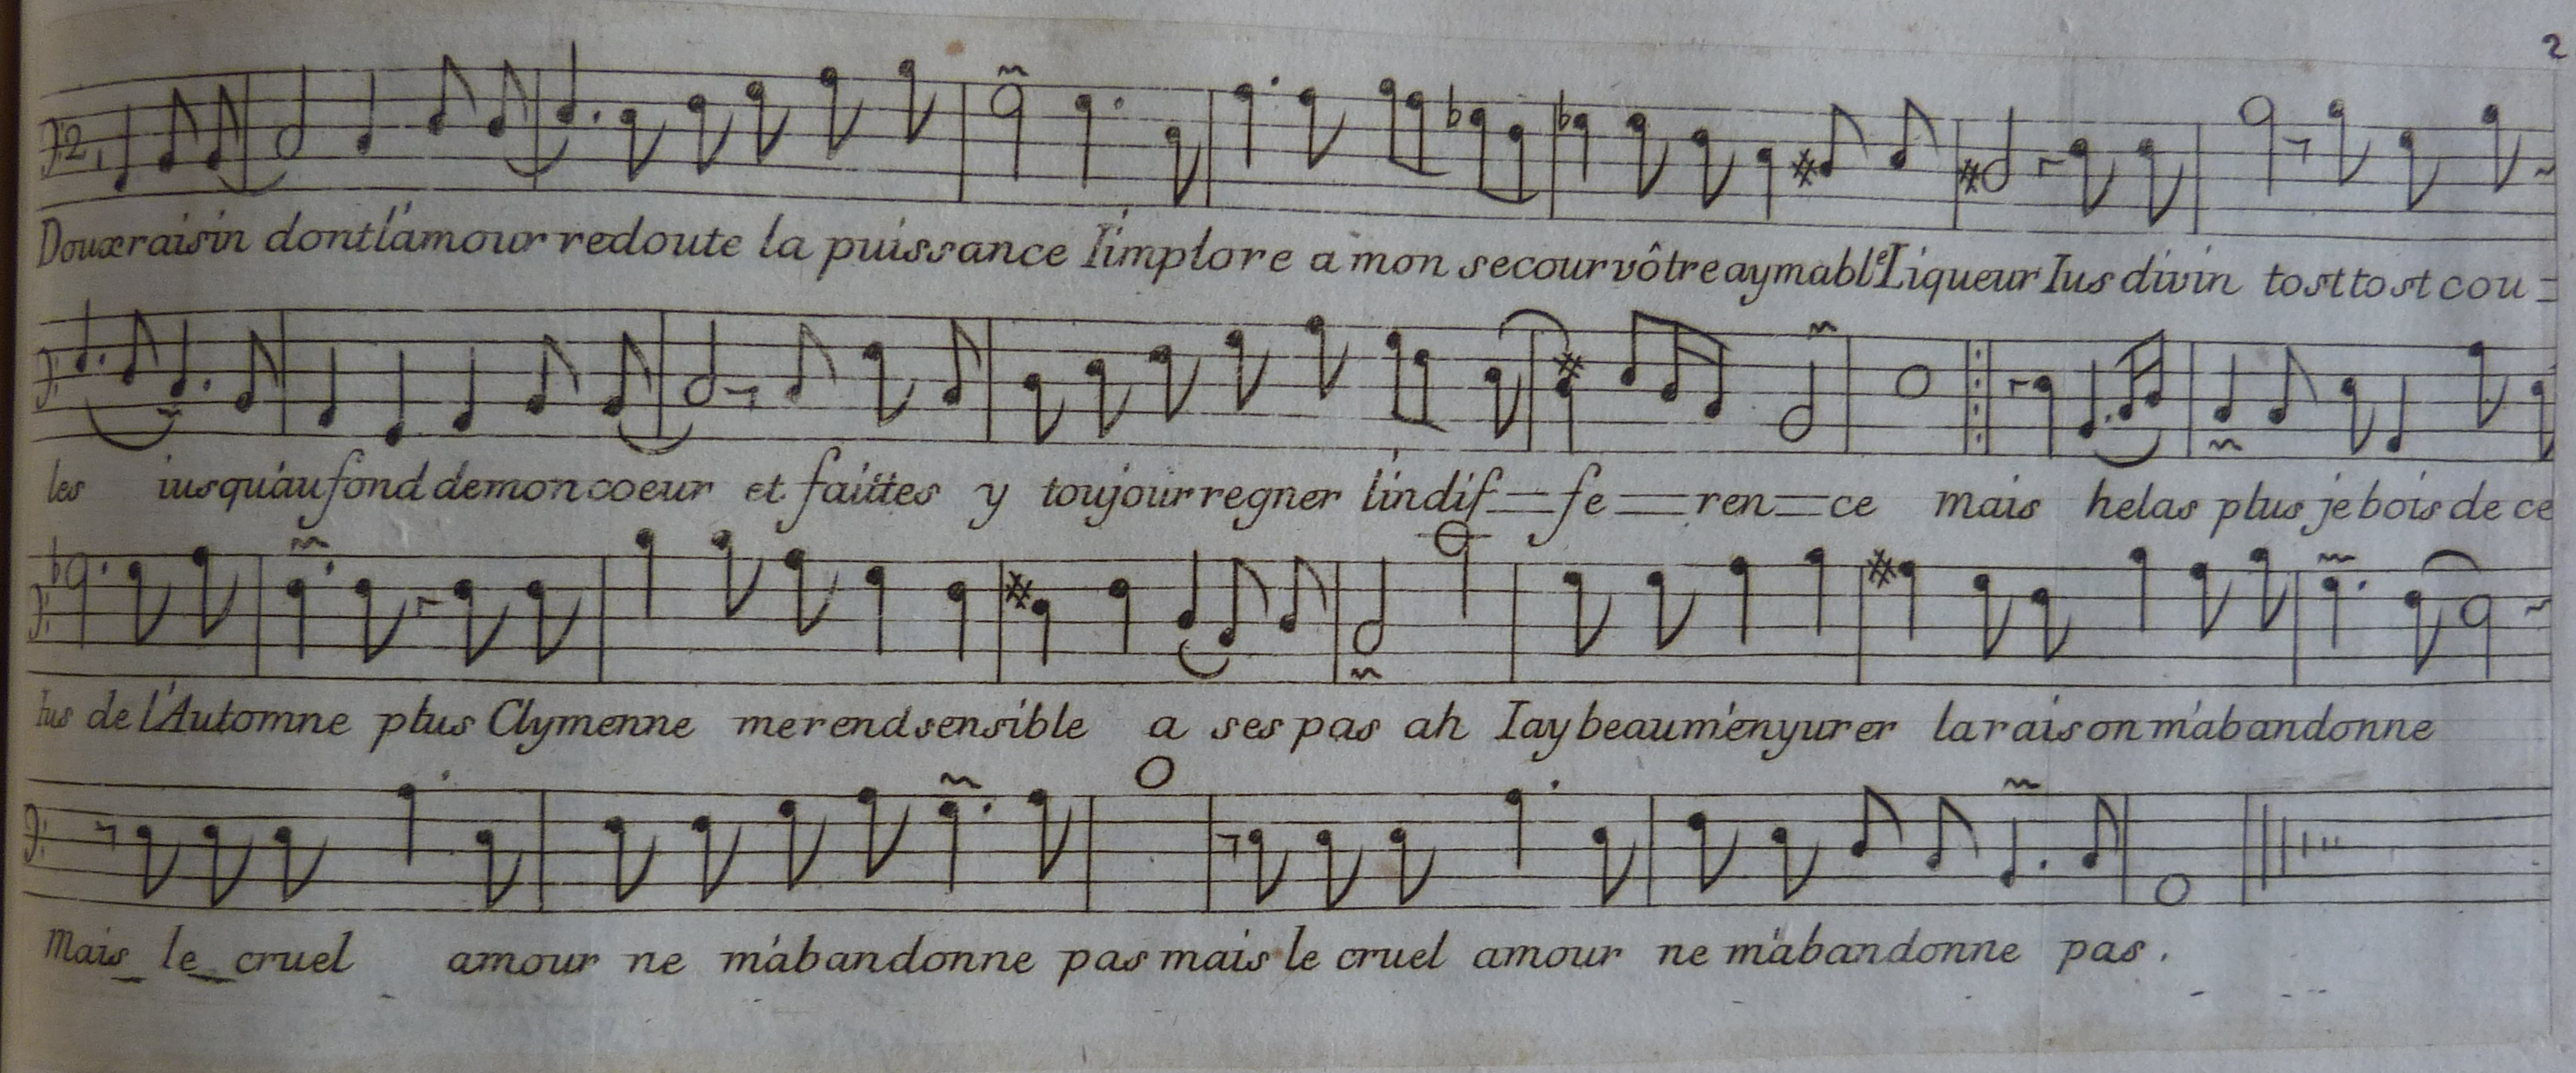 2
Doux raisin dont l'amour redoute la puissance I'implore a mon secour vôtre aymable Liqueur Ius divin tost tost cou=
les iusqu'au fond de mon coeur et faittes y toujour regner l'indif=fe=ren=ce mais helas plus je bois de ce
Ius de l'Automne plus Clymenne me rend sensible a ses pas ah Iay beau m'enyurer la raison m'abandonne
Mais le cruel amour ne m'abandonne pas mais le cruel amour ne m'abandonne pas.